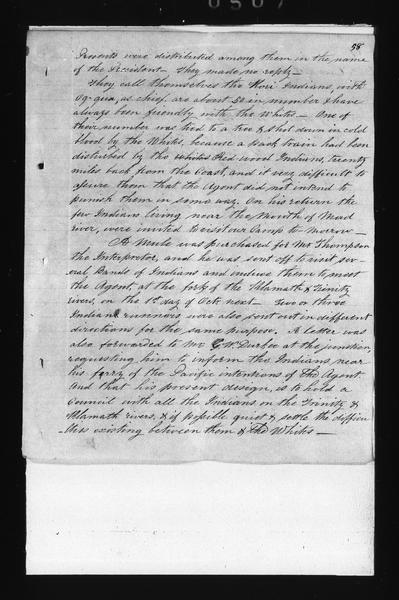 0507
58
Presents were distributed among them in the name
of the President - They made no reply -
They call themselves the Kori Indians, with
Og-qua, as chief. are about 50 in number & have
always been friendly with the Whites - One of
their number was tied to a tree & shot down in cold
blood by the Whites, because a pack train had been
disturbed by the Whites Red wood Indians, twenty
miles back from the Coast, and it very difficult to
assure them that the Agent did not intend to
punish them in some way. On his return the
few Indians living near the Mouth of Mead
river, were invited to visit our Camp to-morrow -
A Mule was purchased for Mr Thompson
the Interpreter, and he was sent off to visit sev
eral Bands of Indians and induce them to meet
the Agent, at the fork of the Klamath & Trinity
rivers, on the 1st day of Octr next - Two or three
Indian runners were also sent out in different
directions for the same purpose. A letter was
also forwarded to Mr G. W. Durkee at the junction,
requesting him to inform the Indians, near
his ferry of the Pacific intentions of the Agent
and that his present design, is to hold a
Council with all the Indians on the Trinity &
Klamath rivers, & if possible quiet & settle the difficu
lties existing between them & the Whites -